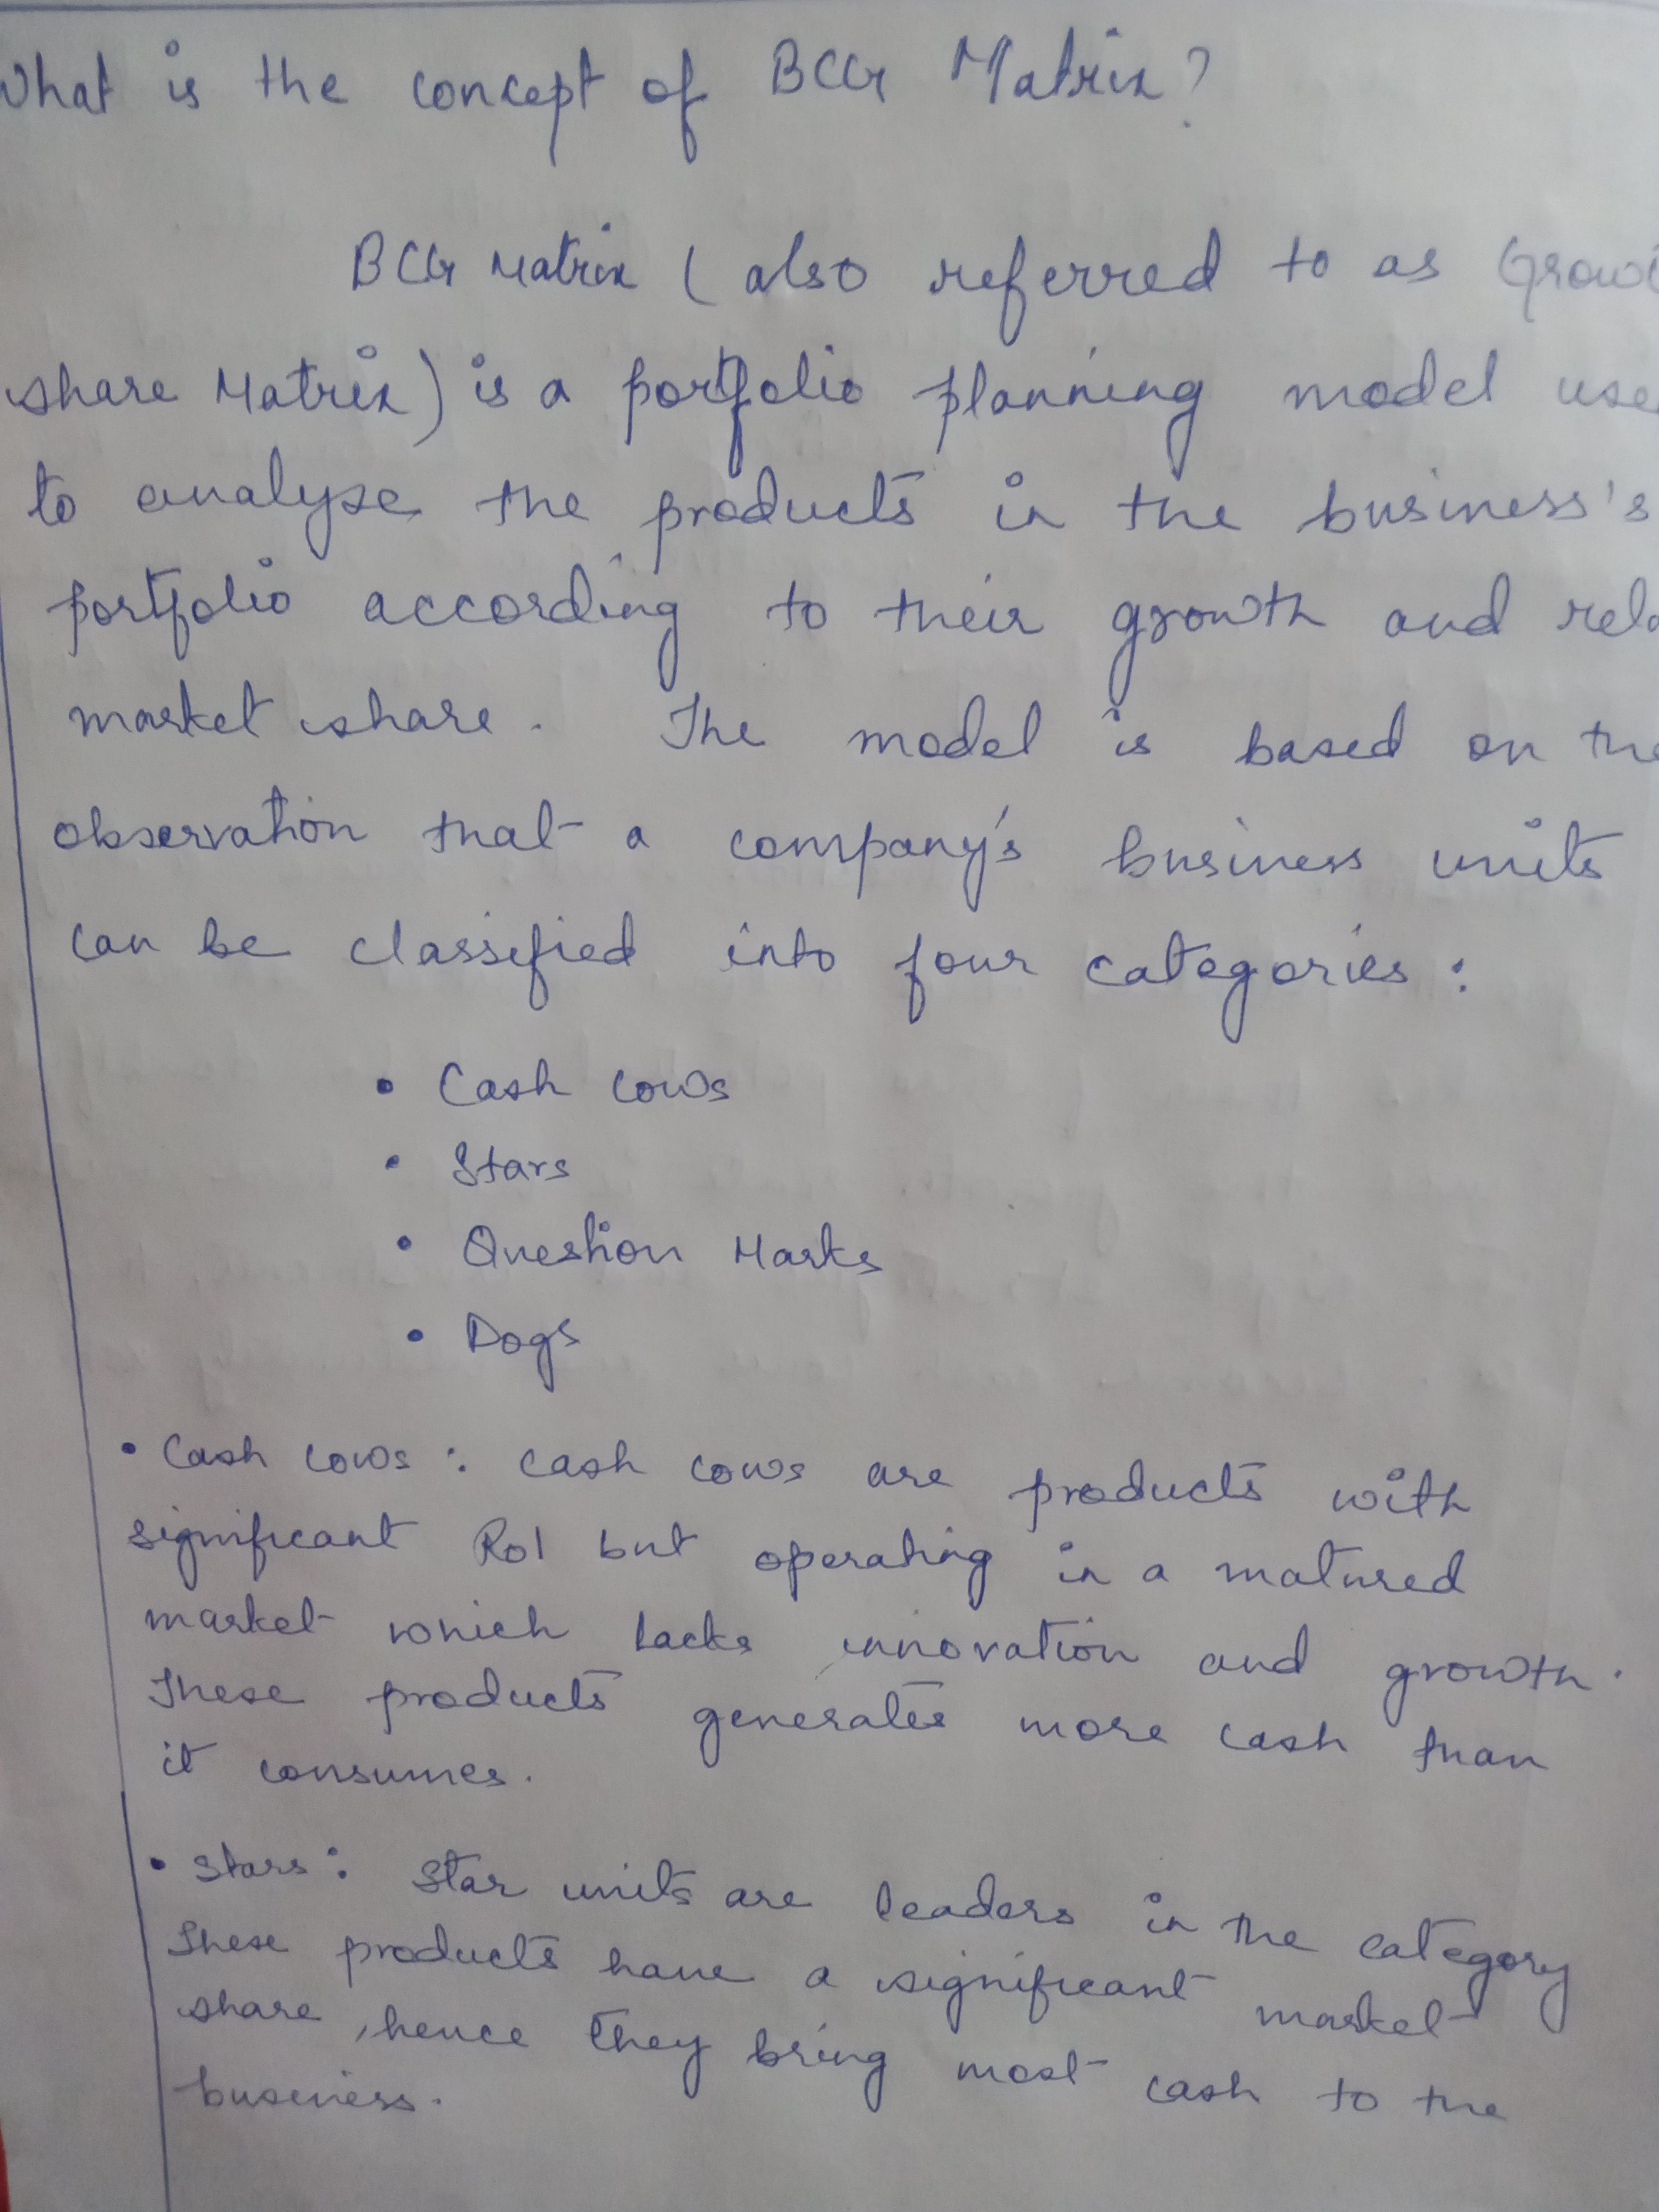 What is the concept of BCG Matrix?
BCG Matrix (also referred to as Growt
share Matrix) is a portfolio planning model use
to analyse the products in the business's
portfolio according to their growth and rela
market share. The model is based on the
observation that a company's business units
can be classified into four categories:
• Cash Cows
• Stars
• Question Marks
• Dogs
• Cash Cows: cash cows are products with
significant RoI but operating in a matured
market which lacks innovation and growth.
These products generates more cash than
it consumes.
• Stars: Star units are leaders in the category
These products have a significant market
share, hence they bring most cash to the
business.